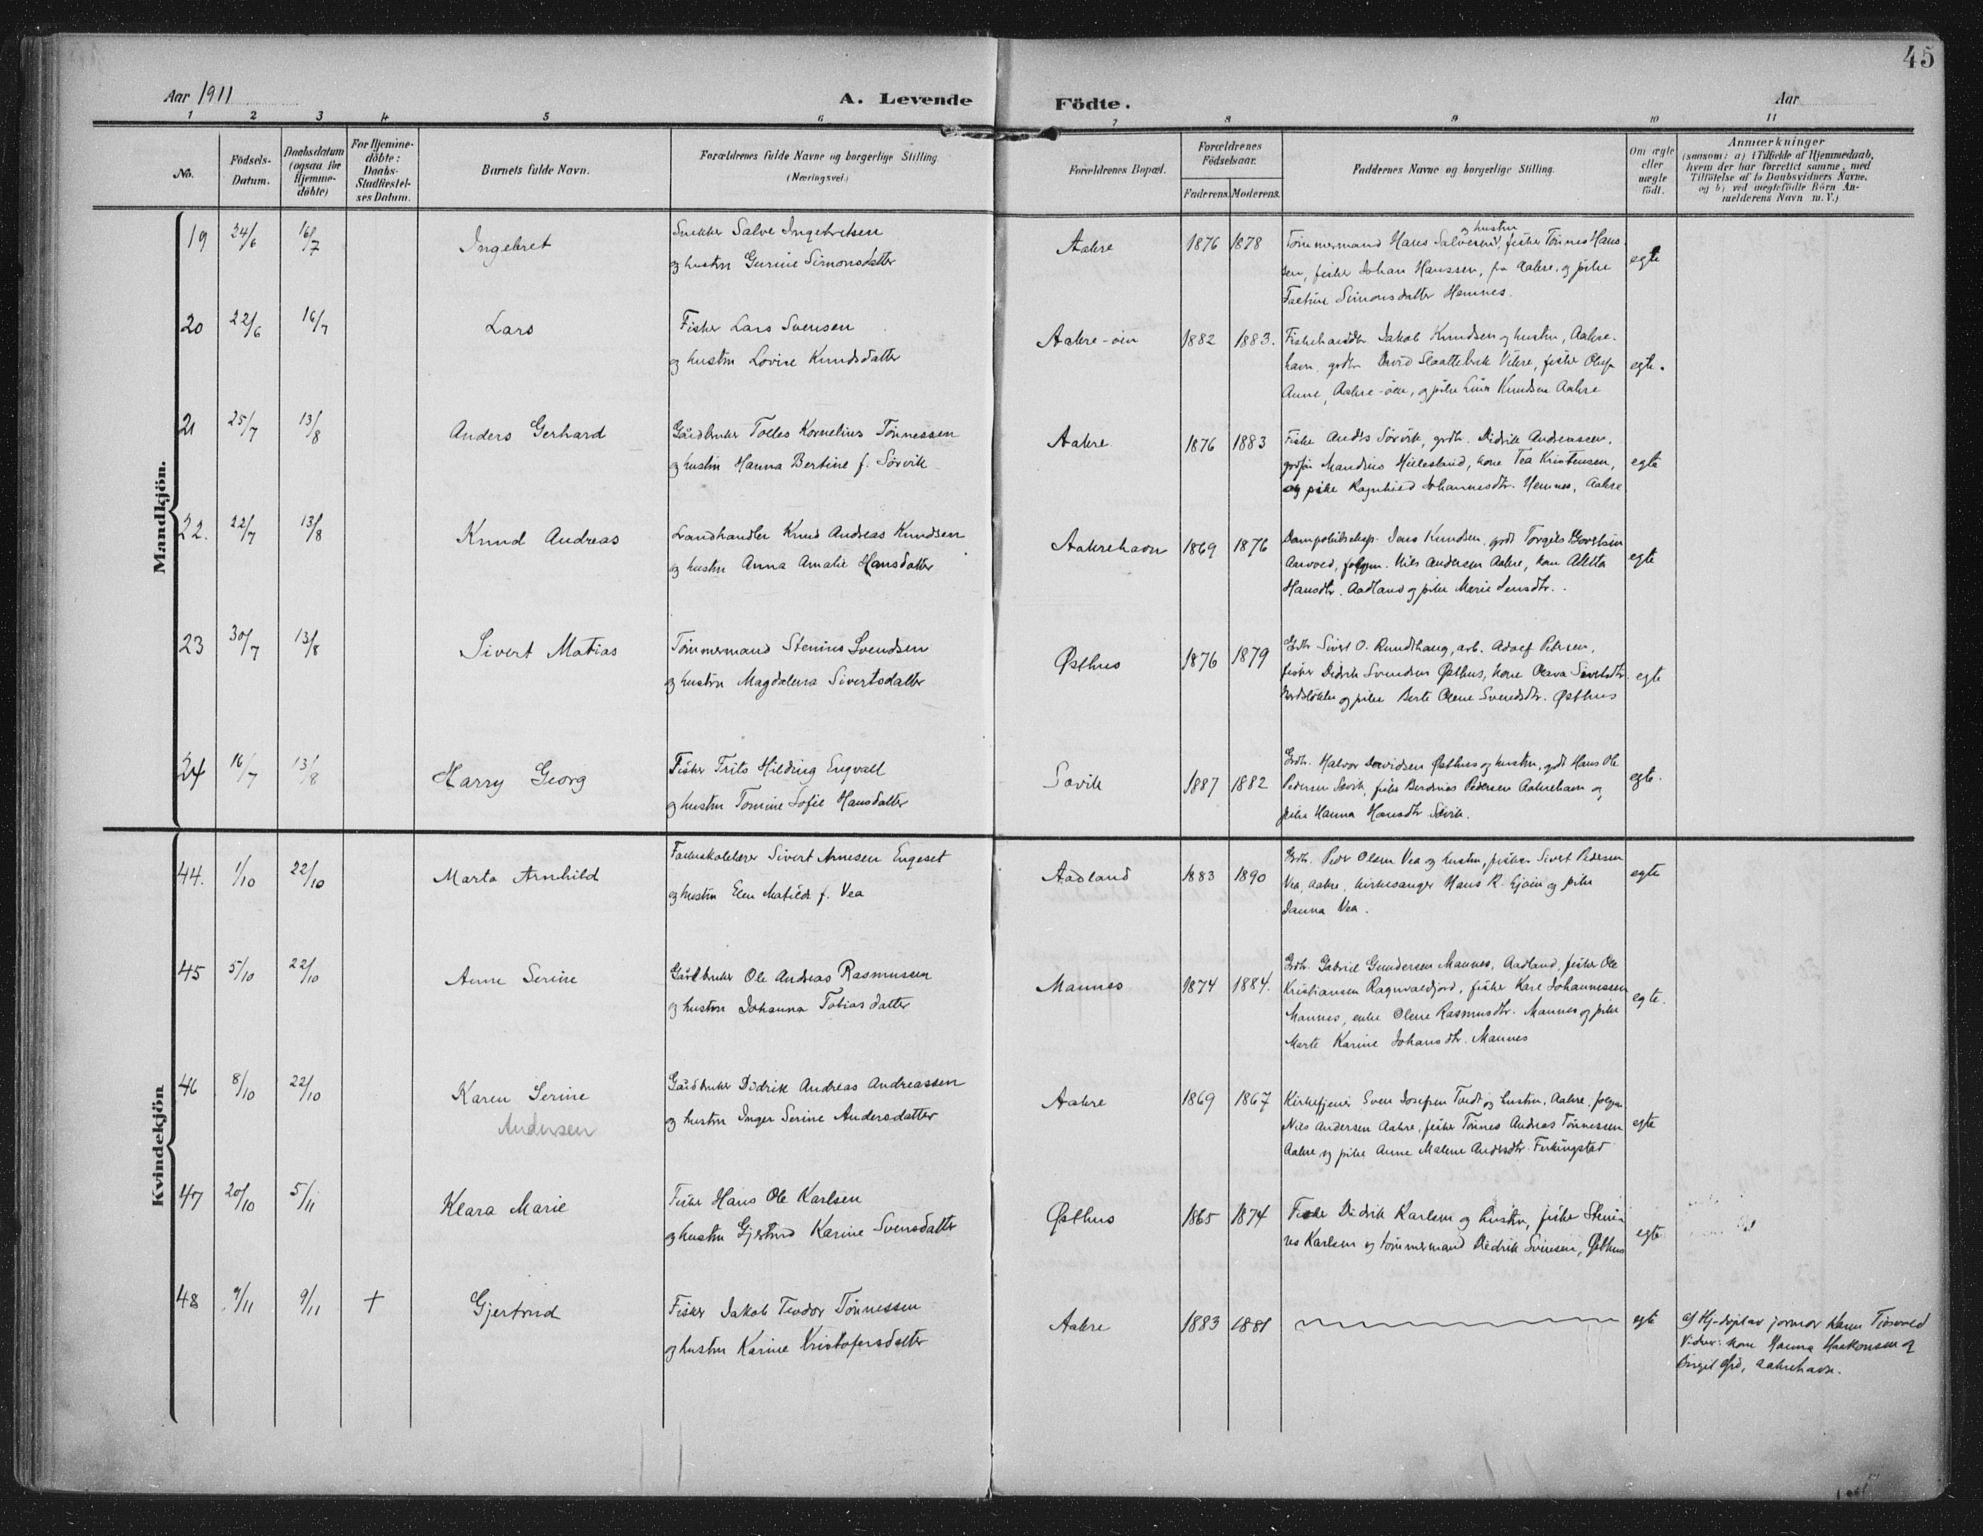 45
Aar 1911
A. Levende Födte.
Aar
1 2 3 4 5 6 7 8 9 10 11
No.
Födsels-
Datum.
Daabsdatum
(ogsaa for
Hjemme-
döbte)
For Hjemme-
döbte:
Daabs-
Stadfæstel-
ses Datum.
Barnets fulde Navn.
Forældrenes fulde Navne og borgerlige Stilling
(Næringsvei.)
Forældrenes Bopæl.
Forældrenes
Födselsaar.
Faderens. Moderens.
Faddernes Navne og borgerlige Stilling.
Om ægte
eller
uægte
födt.
Anmærkninger
(saasom: a) i Tilfælde af Hjemmedaab,
hvem der har forrettet samme, med
Tilföielse af to Daabsvidners Navne,
og b) ved uægtefödte Börn An-
melderens Navn m. V.)
Mandkjön.
19 24/6 16/7 Ingebret
Snekker Salve Ingebretsen
og hustru Gurine Simonsdatter
Aakre 1876 1878
Tømmermand Hans Salvesen og hustru, fisker Tønnes Hans-
sen, fisker Johan Hanssen, fra Aakre, og pike
Simonsdatter Hemnes.
egte
20 22/6 16/7 Lars
Fisker Lars Svensen
og hustru Lovise Knudsdatter
Aakre-øen 1882 1883.
Jakob Knudsen og hustru, Aakre-
havn, grdbr. Vikre, fisker
Aakre-øen, og pike Knudsen Aakre
egte.
21 25/7 13/8 Anders Gerhard
Gårdbruker Tolles Kornelius Tønnessen
og hustru Hanna Bertine f. Sørvik
Aakre 1876 1883
Fisker Sørvik, grdb. Didrik Andreassen,
kone Tea Kristensen,
og pike Ragnhild Johannesdtr. Hemnes, Aakre
egte
22. 22/7 13/8 Knud Andreas
Landhandler Knud Andreas Knudsen
og hustru Anna Amalie Hansdatter
Aakrehavn 1869 1876
Jens Knudsen, Torgels
Nils Andersen Aakre, kone Aletta
Hansdtr. Aadland og pike Marie Jensdtr.
egte
23 30/7 13/8 Sivert Matias
Tømmermand Stenius Svendsen
og hustru Magdalena Sivertsdatter
Østhus 1876 1879
Grdbr. Sivert O. Rundhaug, arb. Adolf Petersen,
fisker Didrik Svendsen Østhus, kone Olava Sivertsdtr.
og pike Berte Olene Svendsdtr. Østhus
egte
24 16/7 13/8 Harry Georg
Fisker Frits Hilding Engvall
og hustru Tomine Sofie Hansdatter
Sævik 1887 1882
Grdb. Halvor Davidsen Østhus og hustru, grdb Hans Ole
Pedersen Sævik, fisker Pedersen Aakrehavn og
pike Hanna Hansdtr Sævik.
egte.
Kvindekjön
44. 1/10 22/10 Marta Arnhild
Folkeskolelærer Sivert Arnesen Engeset
og hustru Elen Matilde f. Vea
Aadland 1883 1890
Grdb. Peder Olsen Vea og hustru, fisker Sivert Pedersen
Vea, Aakre, kirkesanger Hans R. og pike
Janna Vea.
egte
45 5/10 22/10 Anne Serine
Gårdbruker Ole Andreas Rasmussen
og hustru Johanna Tobiasdatter
Mannes 1874 1884.
Grdb. Gabriel Gundersen Mannes, Aadland, fisker Ole
Kristiansen fisker Karl Johannessen
Mannes, enke Olene Rasmusdtr. Mannes og pike
Marte Karine Johansdtr. Mannes
egte.
46 8/10 22/10 Karen Serine
Andersen
Gårdbruker Didrik Andreas Andreassen
og hustru Inger Serine Andersdatter
Aakre 1869 1867
Kirketjener Sven Josefsen Tvedt og hustru, Aakre,
Nils Andersen Aakre, fisker Tønnes Andreas Tønnessen
Aakre og pike Anne Malene Andersdtr. Ferkingstad
egte
47 20/10 5/11 Klara Marie
Fisker Hans Ole Karlsen
og hustru Gjertrud Karine Svensdatter
Østhus 1865 1874
Fisker Didrik Karlsen og hustru, fisker Steni-
us Karlsen og tømmermand Didrik Svensen, Østhus
egte
48 9/11 9/11 + Gjertrud
Fisker Jakob Teodor Tønnessen
og hustru Karine Kristofersdatter
Aakre 1883 1881
egte
af jormor Karen
Vidner: kone Hanna Haakonsen og
Aakrehavn.